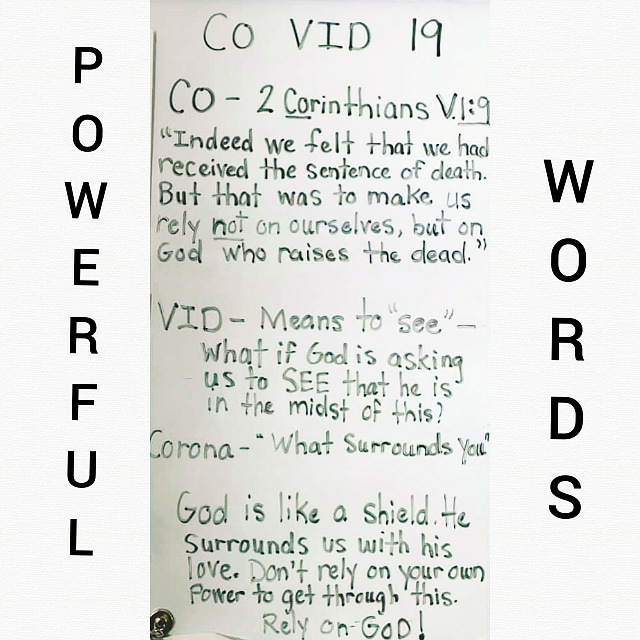 POWERFUL
CO VID 19
CO - 2 Corinthians V.1:9
"Indeed we felt that we had
received the sentence of death.
But that was to make us
rely not on ourselves, but on
God who raises the dead."
VID - Means to "see" -
What if God is asking
us to SEE that he is
in the midst of this?
Corona - "What Surrounds you"
God is like a shield. He
Surrounds us with his
love. Don't rely on your own
Power to get through this.
Rely on GOD!
WORDS